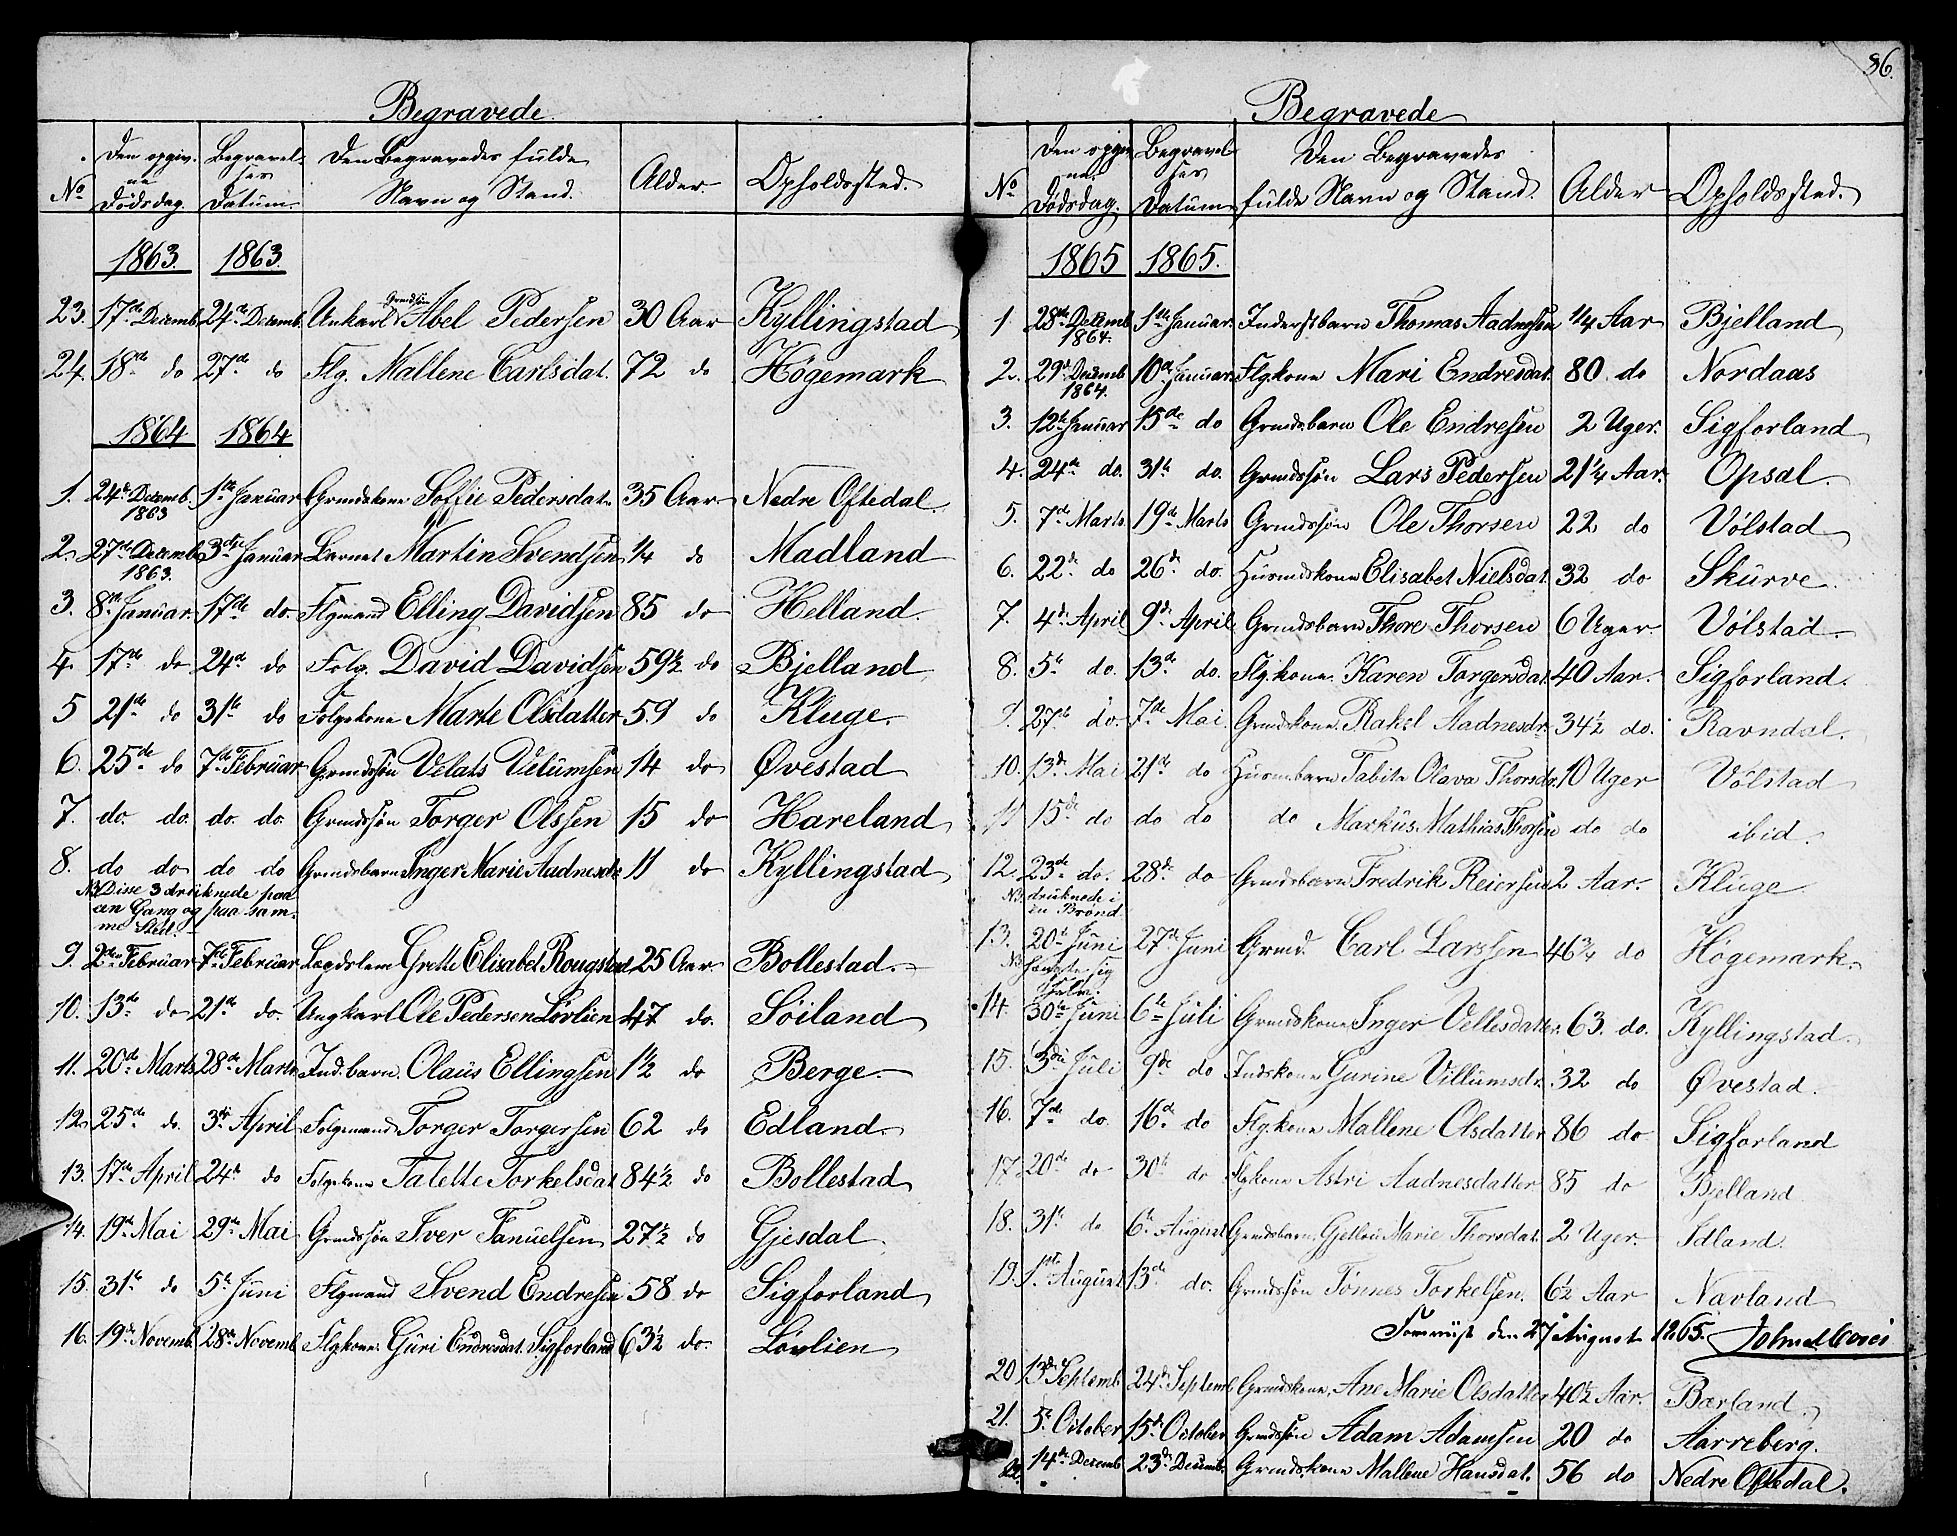 86.
Begravede
No Den opgivne Dødsdag. Begravelses Datum. Den Begravedes fulde Navn og Stand. Alder Opholdssted.
1863. 1863.
23. 17de Decemb. 24de Decemb. Unkarl Grmdsøn Abel Pedersen 30 Aar Kyllingstad
24. 18de do 27de do Flg. Mallene Carlsdat. 72 do Högemark
1864 1864
1. 24de Decemb. 1863 1ste Januar Grmdskone Soffie Pedersdat. 35 Aar Nedre Oftedal.
2. 27de Decemb. 1863. 3die Januar Barnet Martin Svendsen 1/4 do Madland
3. 8de Januar. 17de do. Flgmand Elling Davidsen 85 do Helland.
4. 17de do 24de do Folg. David Davidsen 59 1/2 do Bjelland
5 21de do 31te do Folgekone Marte Olsdatter 59 do Kluge.
6. 25de do 7de Februar Grmdssön Velats Velumsen 14 do Øvestad
7. do. do. do. do. Grmdssön Torger Olssen 15 do Hareland
8. do do do do Grmdsbarn Inger Marie Aadnesdr 11 do Kyllingstad
NB Disse 3 druknede paa
een Gang og paa sam-
me Sted.
9. 2den Februar 7de Februar Lægdslem Grette Elisabet Rougstad 25 Aar. Bollestad.
10. 13de do 21de do. Ungkarl Ole Pedersen Lövlien 47 do. Söiland
11. 20de Marts 28de Marts Ind.barn. Olaus Ellingsen 1 1/2 do Berge.
12. 25de do. 3die April Folgemand Torger Torgersen 62 do Edland.
13. 17de April 24de do Folgekone Talette Torkelsdat 84 1/2 do Bollestad
14. 19de Mai 29de Mai Grmdssön Iver Tanuelsen 27 1/2 do Gjesdal
15. 31te do 5te Juni Flgmand Svend Endresen 58 do Sigforland
16. 19de Novemb. 28de Novemb Flgkone. Guri Endresdat. Sigforland 63 1/2 do. Lövlien
Begravede
No Den opgivne Dødsdag. Begravelses Datum. Den Begravedes fulde Navn og Stand. Alder Opholdssted.
1865 1865.
1 28de Decemb 1864. 1ste Januar. Inderstbarn Thomas Aadnesen 1/4 Aar Bjelland
2. 29de Decemb 1864. 10de Januar. Flgkone Mari Endresdat. 80 do Nordaas
3. 12te Januar 15de do Grmdsbarn Ole Endresen 2 Uger. Sigforland
4. 24de do. 31te do. Grmdssön Lars Pedersen 21 1/4 Aar. Opsal.
5. 7de Marts. 19de Marts Grmdssön Ole Thorsen 22 do Völstad
6. 22de do 26de do. Husmdskone Elisabet Nielsdat. 32 do Skurve.
7. 4de April 9de April Grmdsbarn Thore Thorsen 6 Uger Völstad
8. 5te do. 13de do. Flg.kone. Karen Torgersdat. 40 Aar. Sigforland.
9. 27de do. 7de Mai Grmdskone. Rakel Aadnesdr. 34 1/2 do. Ravndal.
10. 13de Mai 21de do Husmbarn Tabita Olava Thorsdr. 10 Uger Völstad
11 15de do do do do Markus Mathias Thorsen do do ibid.
12. 23de do. 28de do Grmdsbarn Fredrik Reiersen 2 Aar. Kluge
NB. druknede i
en Brönd.
13. 20de Juni 27de Juni Grmd. Carl Larssen 46 3/4 do Högemark.
NB hængte sig
selv.
14. 30te Juni 6te Juli Grmdskone Inger Vellesdatter. 63. do. Kyllingstad.
15. 3die Juli 9de do Indskone Gurine Villumsdr. 32 do Øvestad.
16. 7de do. 16de do Flg.kone Mallene Olsdatter 86 do Sigforland
17. 20de do 30te do Flgkone Astri Aadnesdatter 85 do Bjelland
18. 31te do 6te August Grmdsbarn. Gjellou Marie Thorsdat. 2 Uger. Idland.
19. 1ste August 13de do. Grmdssön Tönnes Torkelsen. 6 1/2 Aar Nævland
den 27 August 1865.
20 13de Septemb 24de Septemb Grmdskone. Ane Marie Olsdatter 40 1/2 Aar. Bærland.
21. 5te October 15de October Grmdssön Adam Adamsen 20 do Aarreberg.
22. 14de Decemb 23de Decemb. Grmdskone Mallene Hansdat. 56 do Nedre Oftedal.